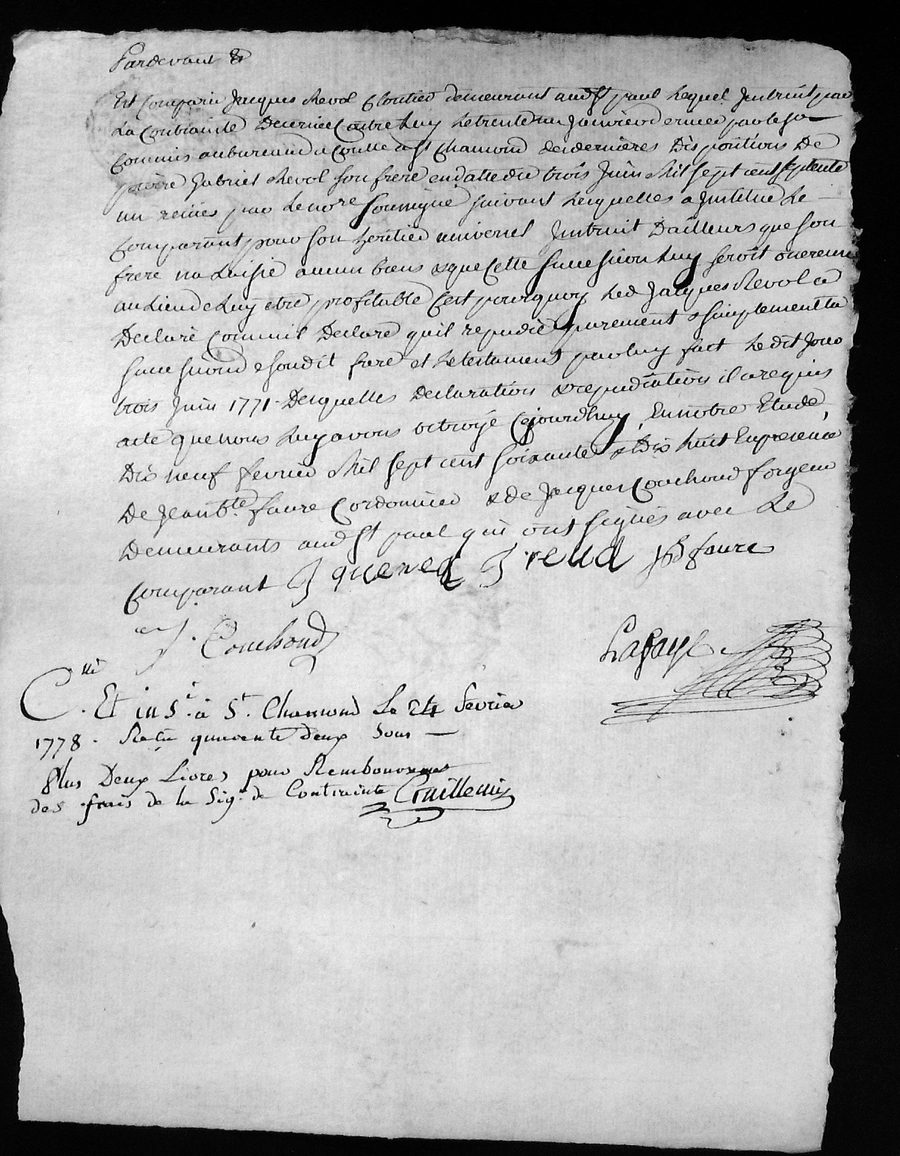 Pardevant &
Est Comparu Jacques Revol Cloutier demeurant aud St paul Lequel Instruit par
La Contrainte Decernée Contre Luy Le trente un Janvier dernier par le Sr
Commis au bureau du Contle a St Chamond des dernières Dispositions De
Gabriel Revol son frère en datte du trois Juin Mil sept cent septente
un reçües par Le nore soussigné suivant Lesquelles a Institué Le
Comparant pour son héritier universel Instruit D'ailleurs que son
frere na Laissé aucun biens & que Cette succession Luy seroit onereuse
au Lieu de Luy etre profitable C'est pourquoy Led Jacques Revol a
Declaré Comm'il Declare qu'il repudie purement & simplement La
succession de son dit frere et Le testament par luy fait Le dit Jour
trois Juin 1771 Desquelles Declaration & repudiation il a requis
acte que nous Luy avons octroyé Cejourdhuy, En notre Etude,
Dix neuf fevrier Mil sept cent soixante & Dix huit En presence
De Jean Bte faure Cordonnier & de Jacques Couchoud forgeur
Demeurants aud St paul qui ont signés avec Le
Comparant J quereq J reud JB faure
J. Couchoud Lafaye
C.llé Et inS.é à St. Chamond Le 24 février
1778. Reçu quarante deux Sous —
Plus Deux Livres pour Remboursement
des frais de la Sig.on de Contrainte